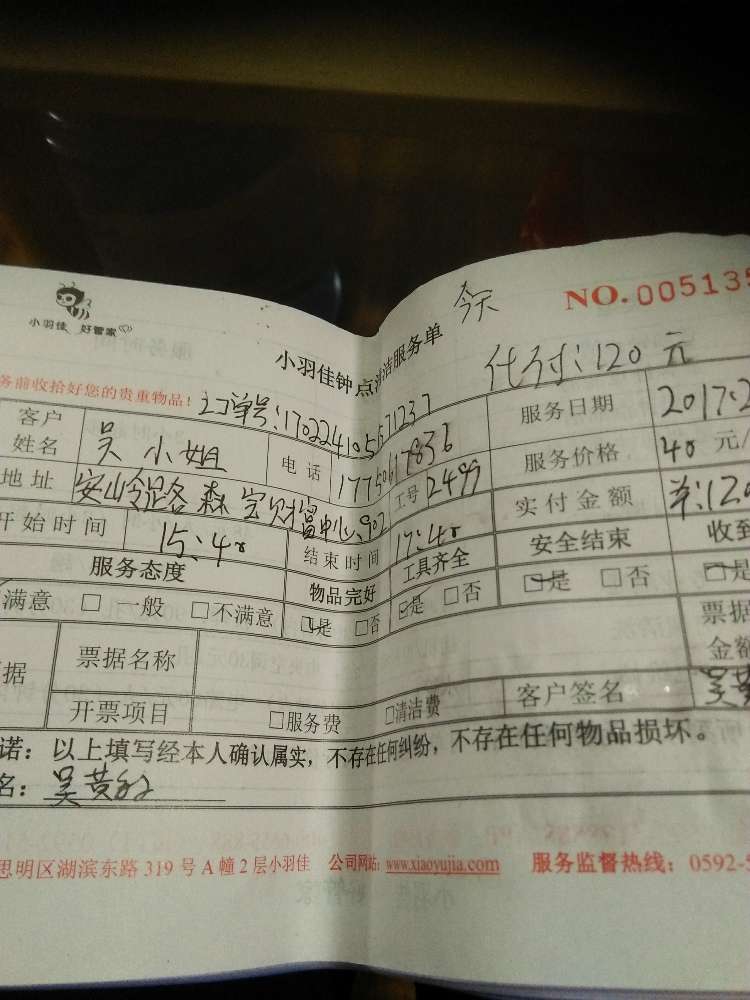 小羽佳 好管家
今天
NO. 005135
小羽佳钟点清洁服务单
代付:120元
务前收拾好您的贵重物品!
工单号:1702241055171237
客户姓名 吴小姐 电话 服务日期 2017.2
地址 工号 2499 服务价格 40元/
开始时间 15:40 结束时间 17:40 实付金额
服务态度 物品完好 工具齐全 安全结束 收到
满意 □ 一般 □不满意 □是 □否 □是 □否 □是 □否 □是
据 票据名称 票据金额
开票项目 □服务费 □清洁费 客户签名
诺:以上填写经本人确认属实,不存在任何纠纷,不存在任何物品损坏。
名:
思明区湖滨东路 319 号 A 幢 2 层小羽佳 公司网站:www.xiaoyujia.com 服务监督热线:0592-5